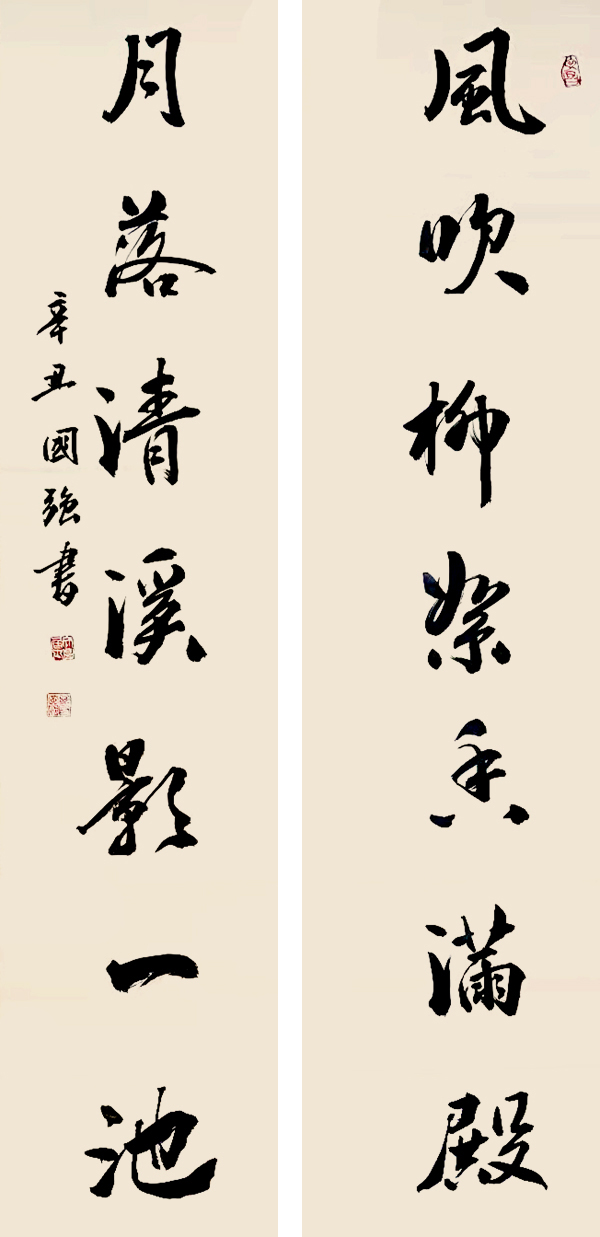 風吹柳絮香滿殿
月落清溪影一池
辛丑國強書